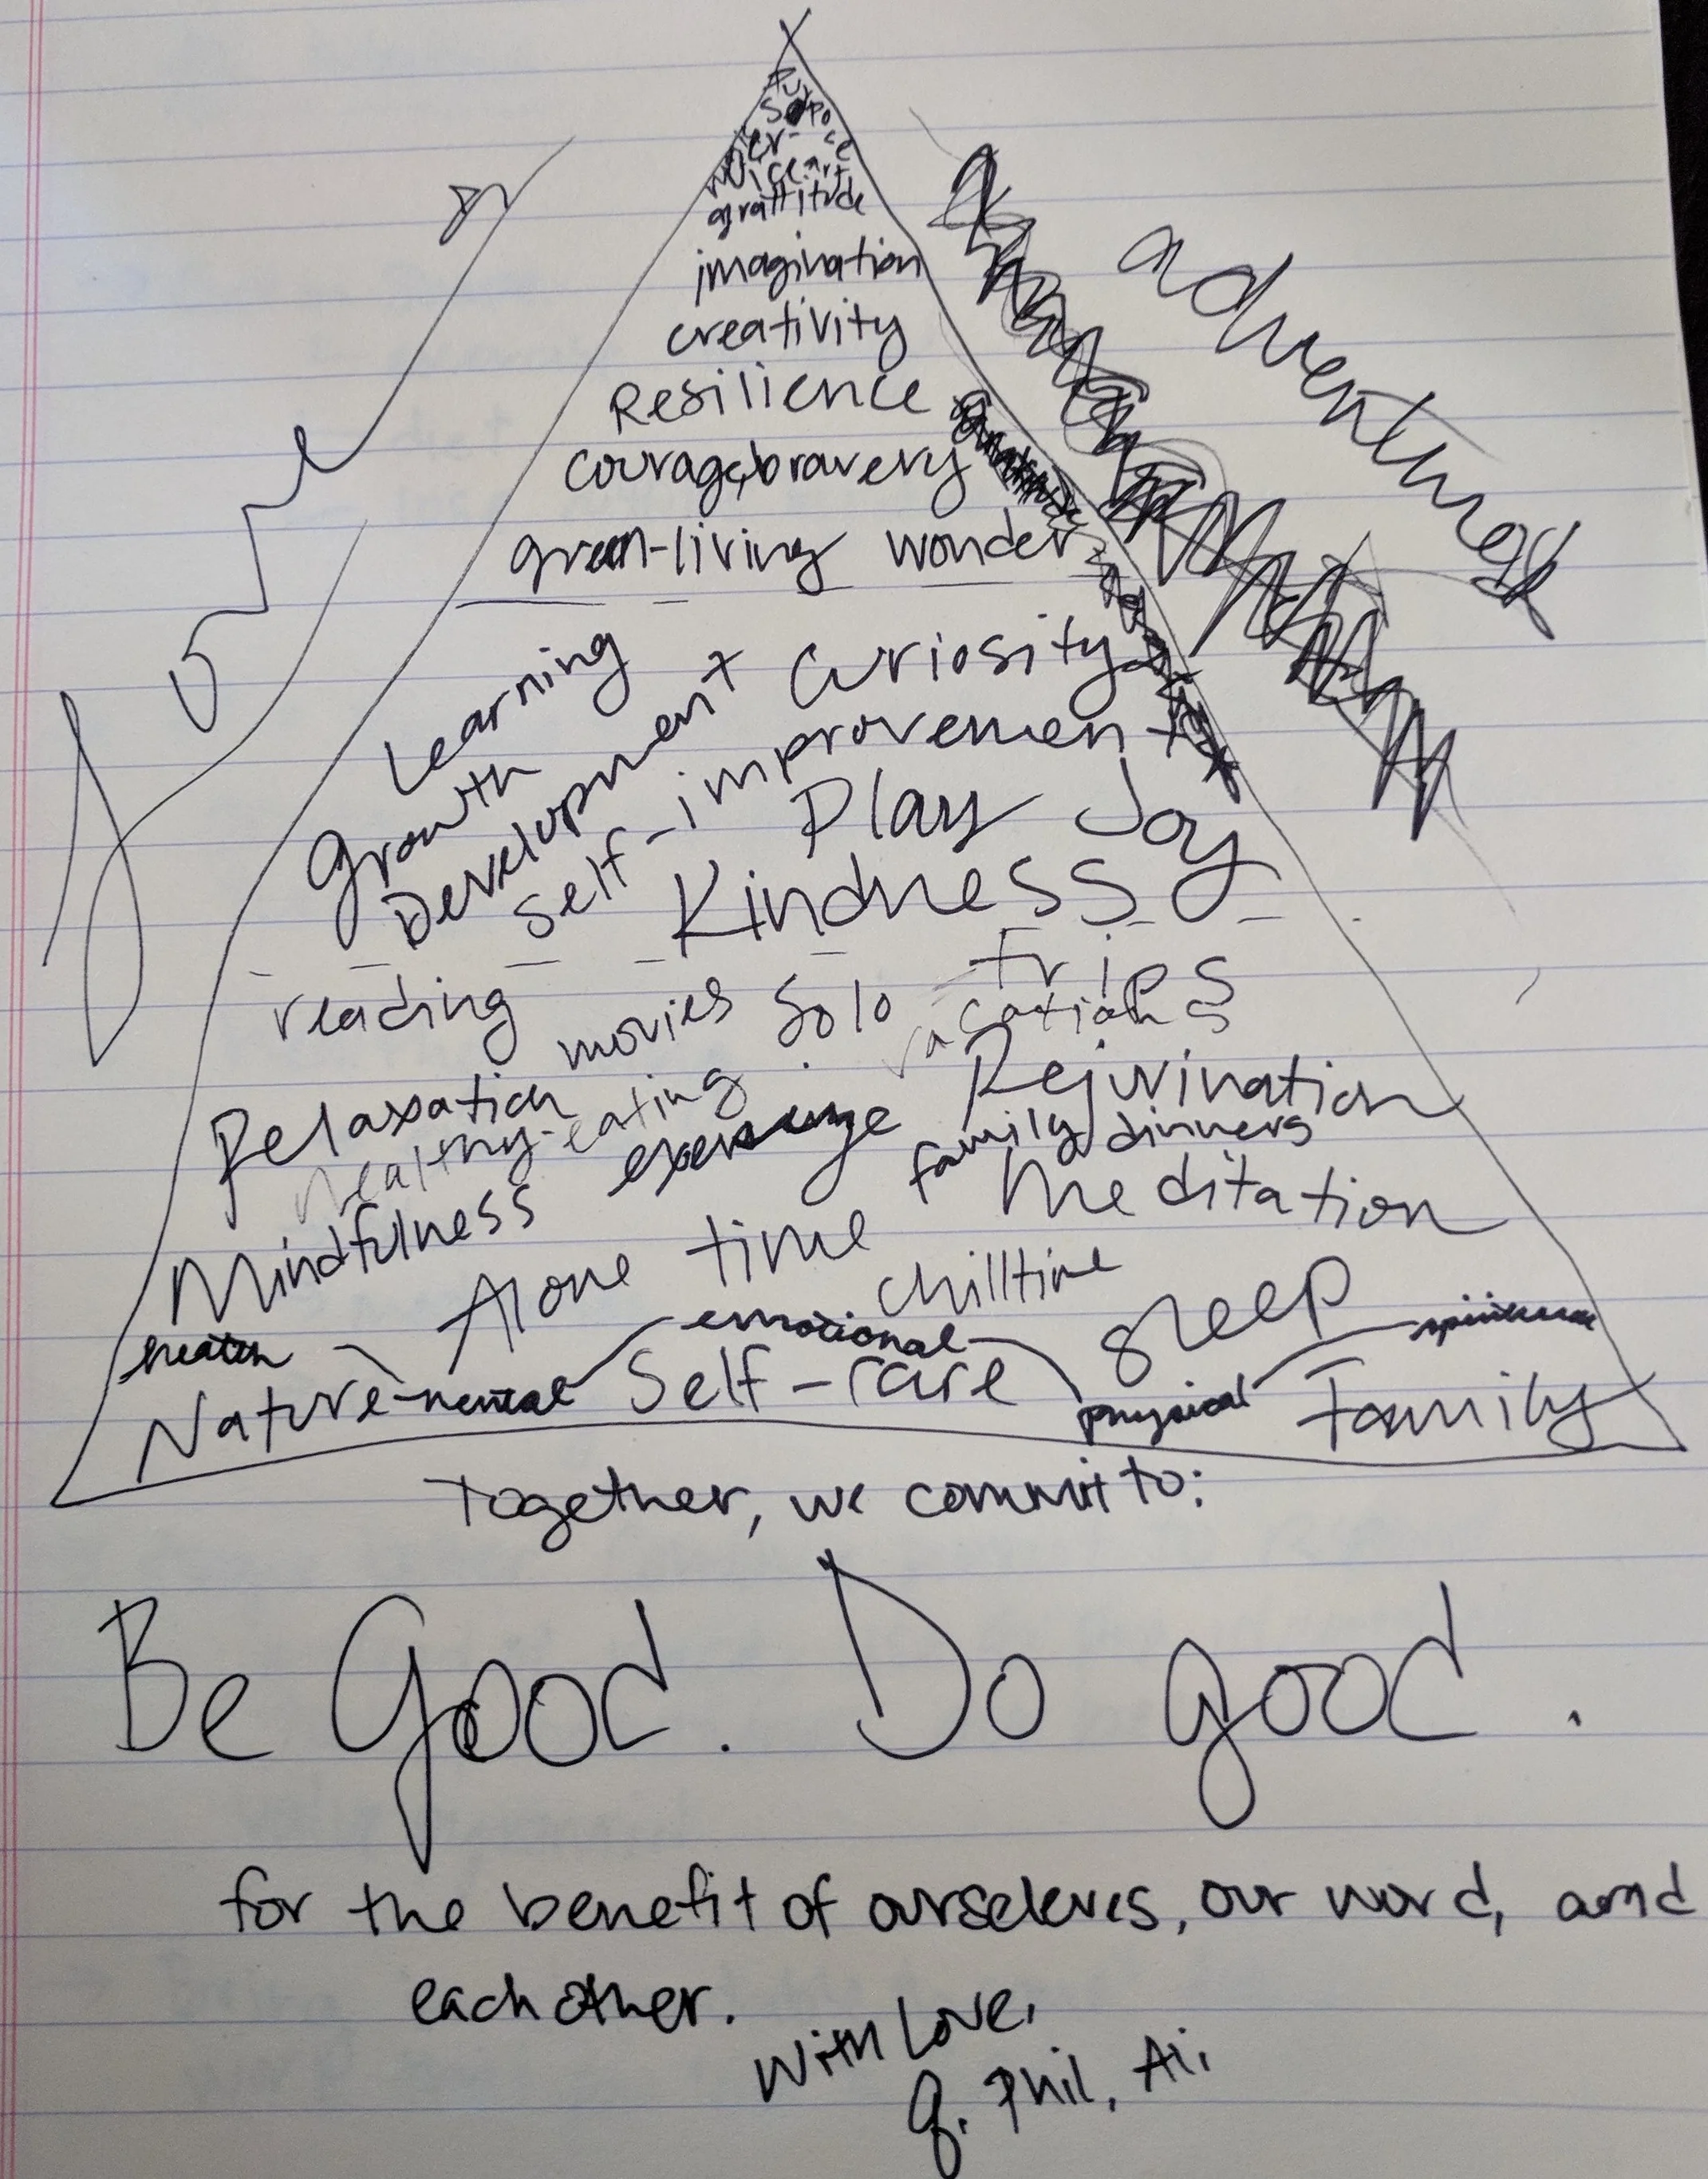 grattitude
imagination
creativity
Resilience
courage, bravery
green-living wonder
adventures
Learning
Growth
Development + Curiosity
Self-improvement
Play Joy
Kindness
reading movies Solo trips
vacations
Relaxation Rejuvination
healthy-eating exercise family dinners
Mindfulness Alone time Meditation
chilltime sleep
health emotional
Nature mental Self-care physical Family
Together, we commit to:
Be Good. Do good.
for the benefit of ourseleves, our word, and
each other.
With Love,
Q. Phil, Ai.